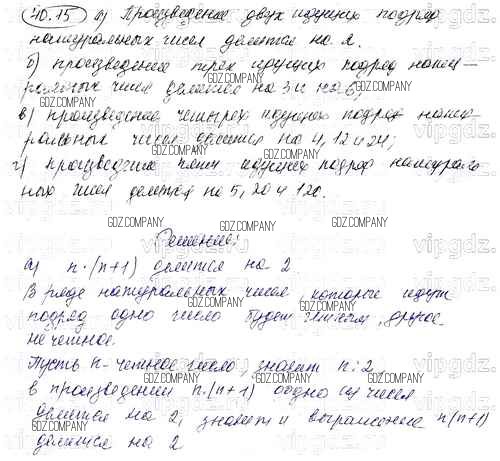 40.15 а) Произведение двух идущих подряд
натуральных чисел делится на 2.
б) произведение трех идущих подряд нату-
ральных чисел делится на 3 и на 6;
в) произведение четырех идущих подряд нату-
ральных чисел делится на 4, 12 и 24;
г) произведение пяти идущих подряд натураль
ных чисел делится на 5, 20 и 120.
Решение:
а) n·(n+1) делится на 2
В ряде натуральных чисел которые идут
подряд одно число будет четным, другое
нечетное.
Пусть n - четное число, значит n : 2
в произведении n·(n+1) одно из чисел
делится на 2, значит и выражение n(n+1)
делится на 2
GDZ.COMPANY
vipgdz.ru